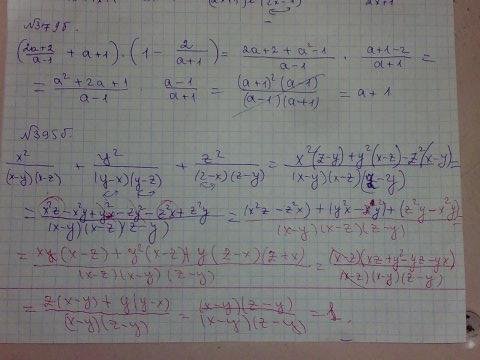 №379б.
(2a+2/a-1 + a+1) · (1 - 2/a+1) = 2a+2+a²-1/a-1 · a+1-2/a+1 =
= a²+2a+1/a-1 · a-1/a+1 = (a+1)²(a-1)/(a-1)(a+1) = a+1
№395б.
x²/(x-y)(x-z) + y²/(y-x)(y-z) + z²/(z-x)(z-y) = x²(z-y)+y²(x-z)-z²(x-y)/(x-y)(x-z)(z-y) =
= x²z-x²y+y²x-zy²-z²x+z²y/(x-y)(x-z)(z-y) = (x²z-z²x)+(y²x-x²y)+(z²y-y²z)/(x-y)(x-z)(z-y)
= (x-z)+y²(x-z)+y(z-x)(z+x)/(x-z)(x-y)(z-y) = (x-z)(xz+y²-yz-yx)/(x-z)(x-y)(z-y) =
= z(x-y)+y(y-x)/(x-y)(z-y) = (x-y)(z-y)/(x-y)(z-y) = 1.